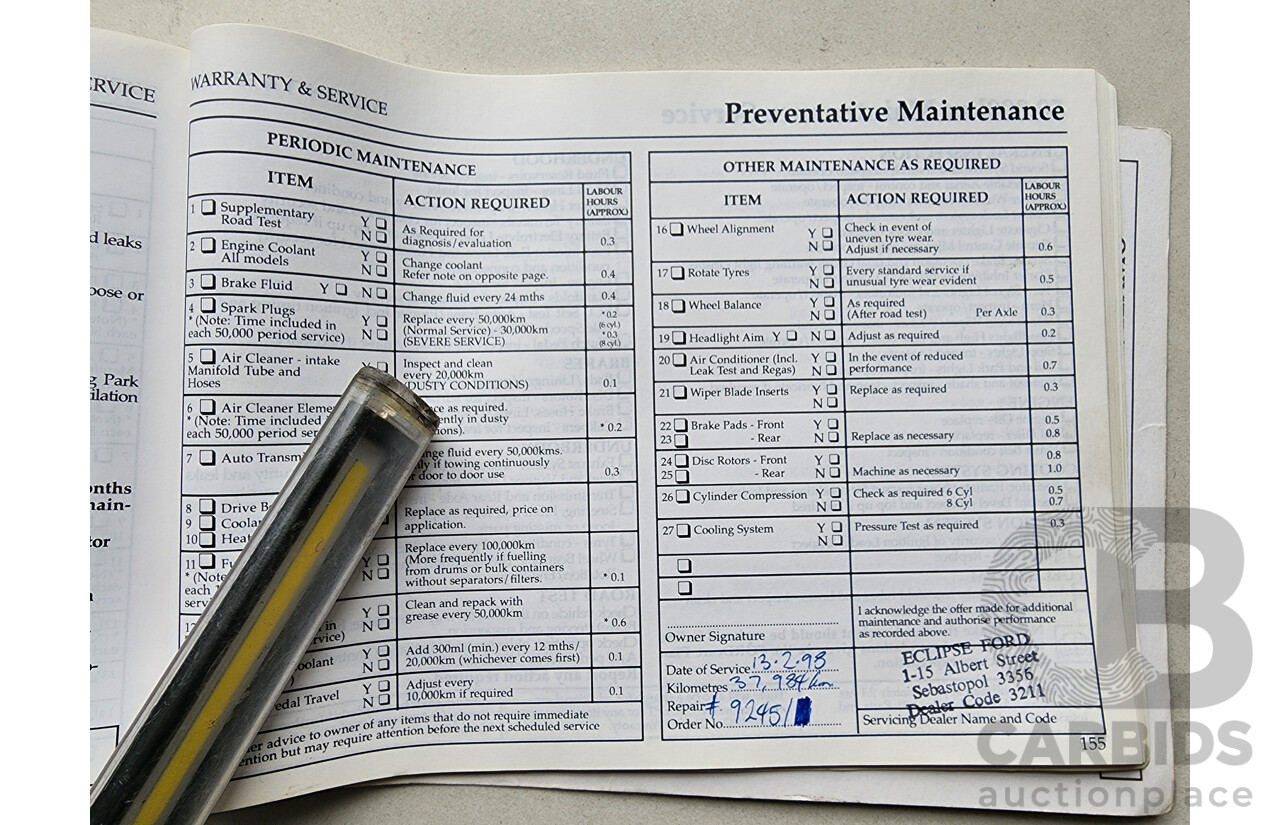 ERVICE
d leaks
oose or
g Park
ilation
onths
nain-
or
WARRANTY & SERVICE
Preventative Maintenance
PERIODIC MAINTENANCE
ITEM
ACTION REQUIRED
LABOUR
HOURS
(APPROX)
1 Supplementary
Road Test
Y
N
As Required for
diagnosis/evaluation
0.3
2 Engine Coolant
All models
Y
N
Change coolant
Refer note on opposite page.
0.4
3 Brake Fluid Y N
Change fluid every 24 mths
0.4
4 Spark Plugs
* (Note: Time included in
each 50,000 period service)
Y
N
Replace every 50,000km
(Normal Service) - 30,000km
(SEVERE SERVICE)
* 0.2
(6 cyl.)
* 0.3
(8 cyl.)
5 Air Cleaner - intake
Manifold Tube and
Hoses
Inspect and clean
every 20,000km
(DUSTY CONDITIONS)
0.1
6 Air Cleaner Eleme
* (Note: Time included
each 50,000 period ser
ce as required.
ently in dusty
ons).
* 0.2
7 Auto Transmi
nge fluid every 50,000kms.
ly if towing continuously
r door to door use
0.3
8 Drive B
9 Coolan
10 Heat
Replace as required, price on
application.
11 Fu
* (Note
each
serv
Y
N
Replace every 100,000km
(More frequently if fuelling
from drums or bulk containers
without separators/filters.
* 0.1
12
in
rvice)
Y
N
Clean and repack with
grease every 50,000km
* 0.6
oolant
Y
N
Add 300ml (min.) every 12 mths/
20,000km (whichever comes first)
0.1
edal Travel
Y
N
Adjust every
10,000km if required
0.1
er advice to owner of any items that do not require immediate
ention but may require attention before the next scheduled service
OTHER MAINTENANCE AS REQUIRED
ITEM
ACTION REQUIRED
LABOUR
HOURS
(APPROX)
16 Wheel Alignment
Y
N
Check in event of
uneven tyre wear.
Adjust if necessary
0.6
17 Rotate Tyres
Y
N
Every standard service if
unusual tyre wear evident
0.5
18 Wheel Balance
Y
N
As required
(After road test) Per Axle
0.3
19 Headlight Aim Y N
Adjust as required
0.2
20 Air Conditioner (Incl.
Leak Test and Regas)
Y
N
In the event of reduced
performance
0.7
21 Wiper Blade Inserts
Y
N
Replace as required
0.3
22 Brake Pads - Front
23 - Rear
Y
N
Replace as necessary
0.5
0.8
24 Disc Rotors - Front
25 - Rear
Y
N
Machine as necessary
0.8
1.0
26 Cylinder Compression
Y
N
Check as required 6 Cyl
8 Cyl
0.5
0.7
27 Cooling System
Y
N
Pressure Test as required
0.3
Owner Signature
I acknowledge the offer made for additional
maintenance and authorise performance
as recorded above.
Date of Service 13.2.98
Kilometres 37,984km
Repair
Order No. # 9245/
ECLIPSE FORD
1-15 Albert Street
Sebastopol 3356
Dealer Code 3211
Servicing Dealer Name and Code
155
CARBIDS
auctionplace